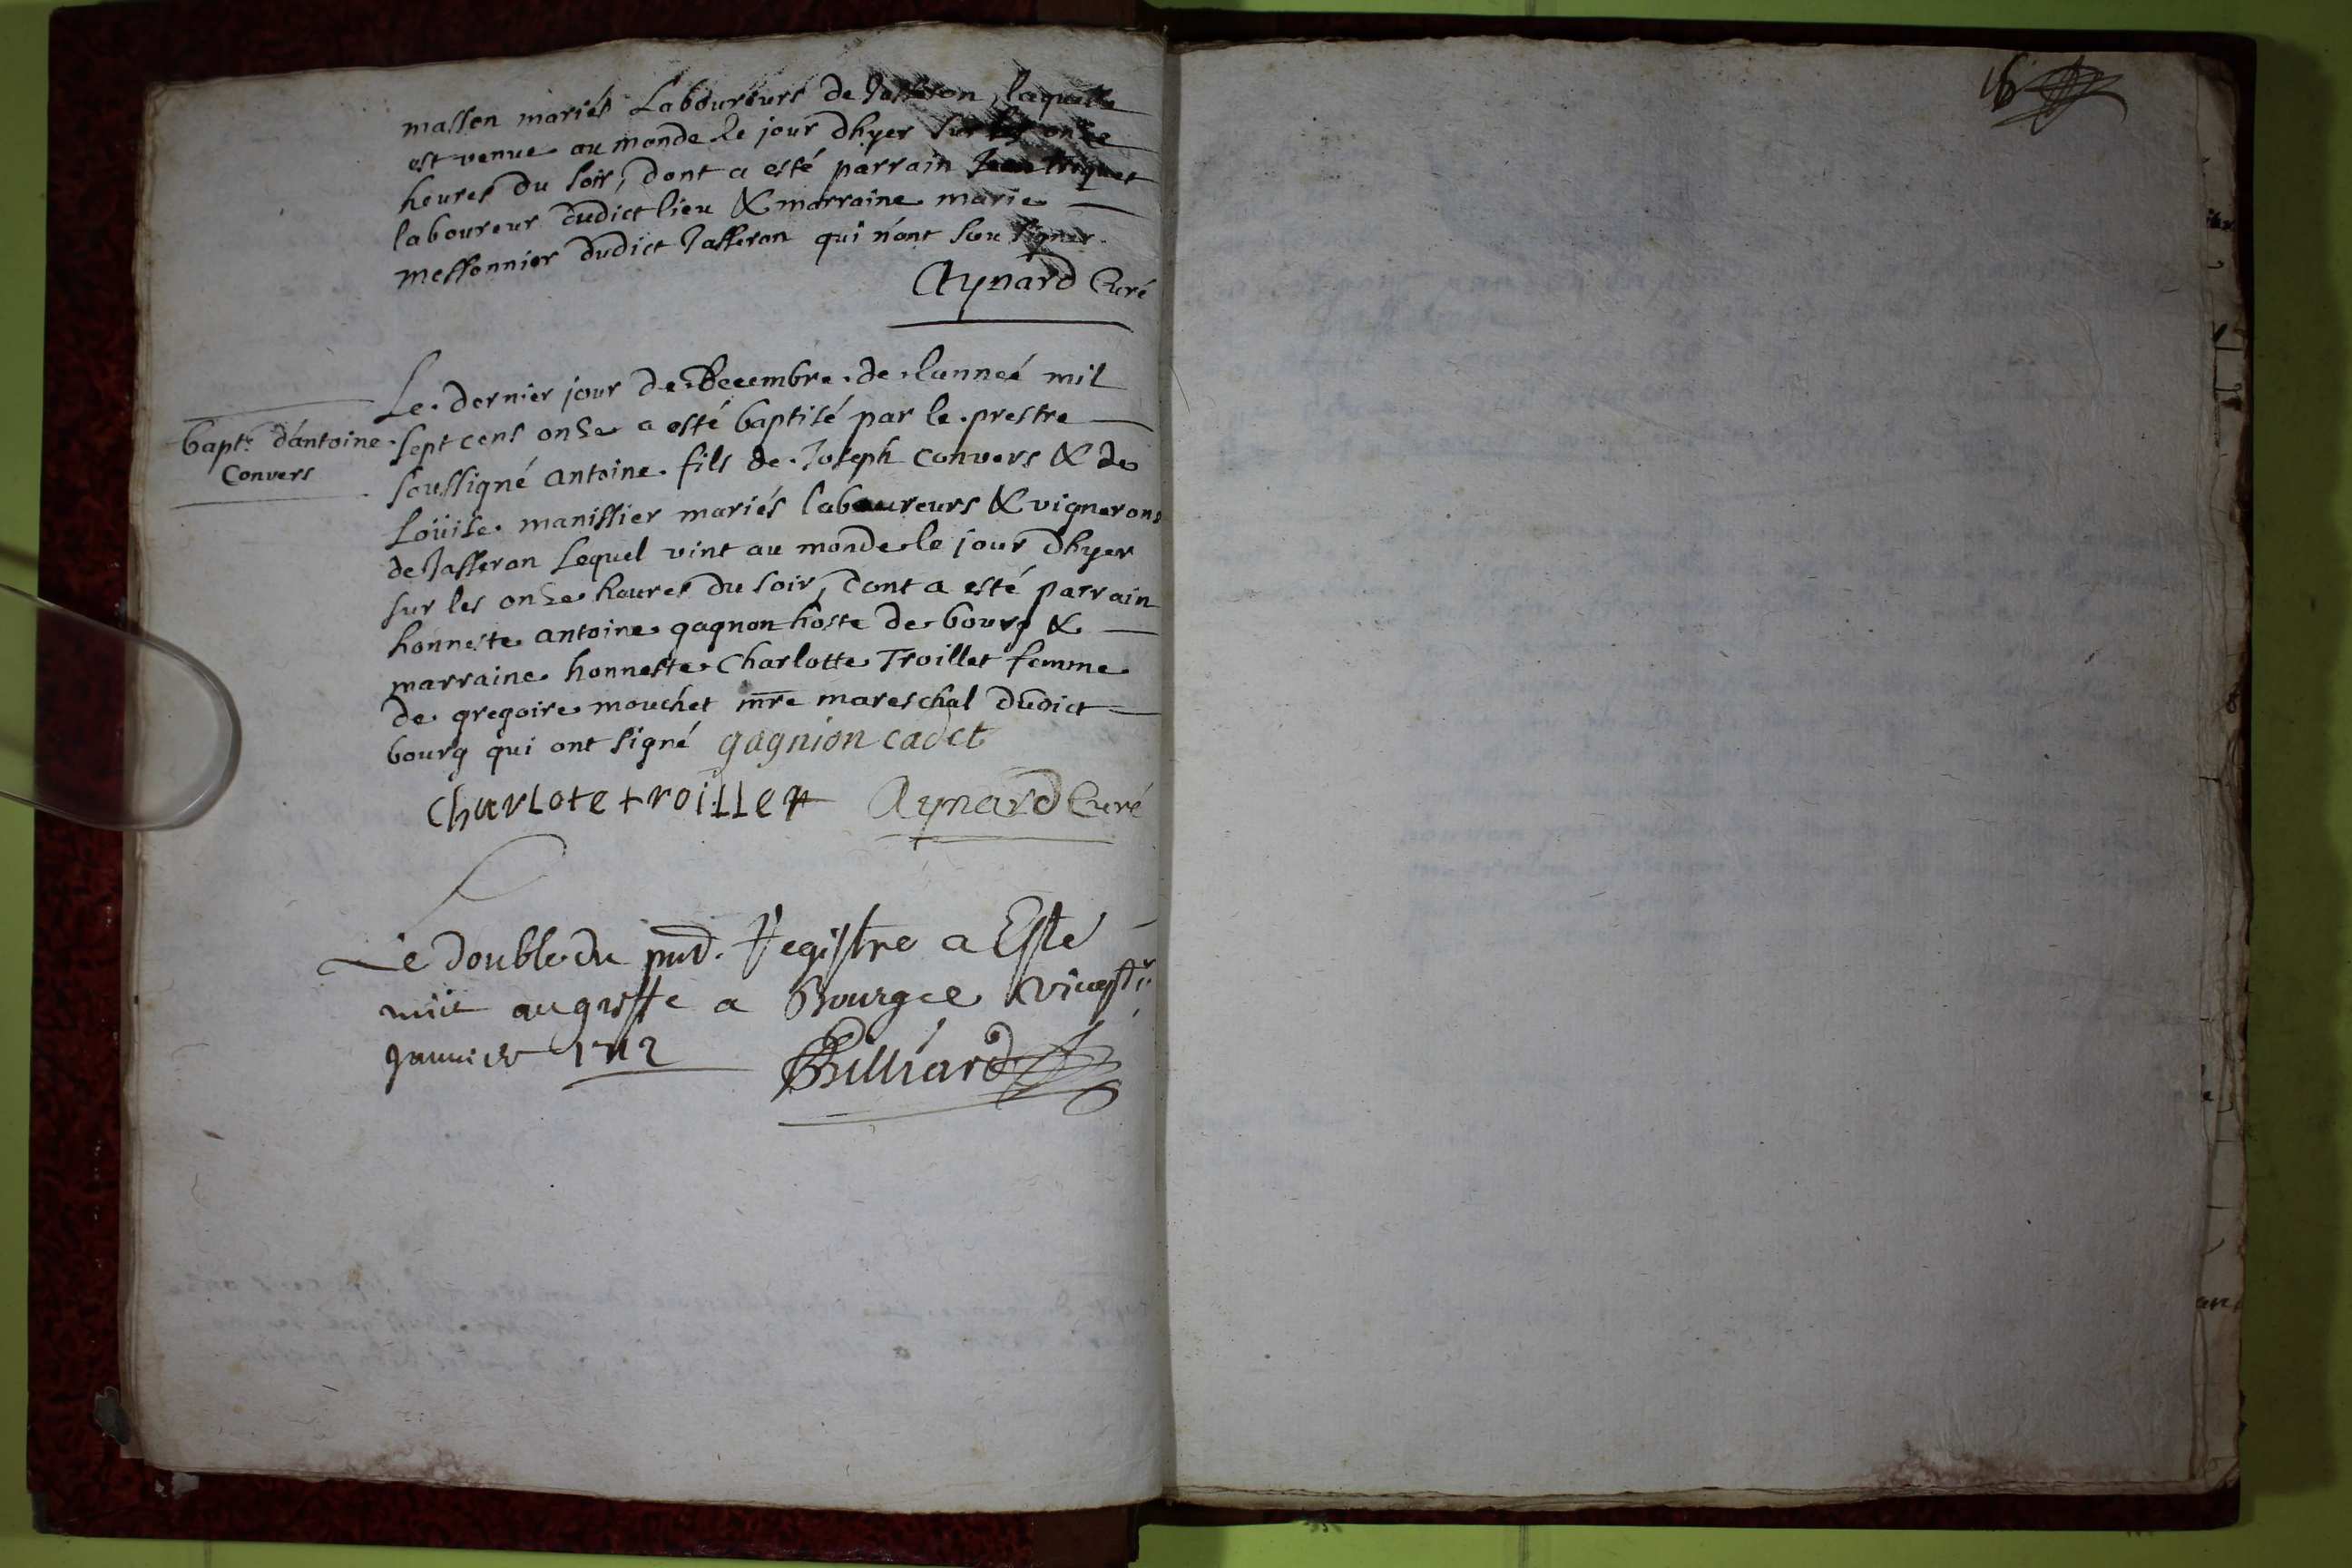 massen mariés Laboureurs de Jasseron, laquelle
est venue au monde le jour dhyer sur les onze
heures du soir, dont a esté parrain Jean
laboureur dudict lieu & marraine marie
messonnier dudict Jasseron qui n'ont sceu signer.
Aynard Curé
Le dernier jour de Decembre de lanneé mil
bapt.e d'antoine
Convers
sept cens onze a esté baptisé par le prestre
soussigné antoine fils de Joseph convers & de
Loüise manissier mariés laboureurs & vignerons
de Jasseron Lequel vint au monde le jour dhyer
sur les onze heures du soir, dont a esté parrain
honneste antoine gagnon hoste de bourg &
marraine honneste Charlotte Troillet femme
de gregoire mouchet mre mareschal dudict
bourg qui ont signé gagnion cadet
Charlote troillet Aynard Curé
Le double du pnt. Registre a Esté
mis au greffe a Bourg ce
Janvier 1712 Billiard
16